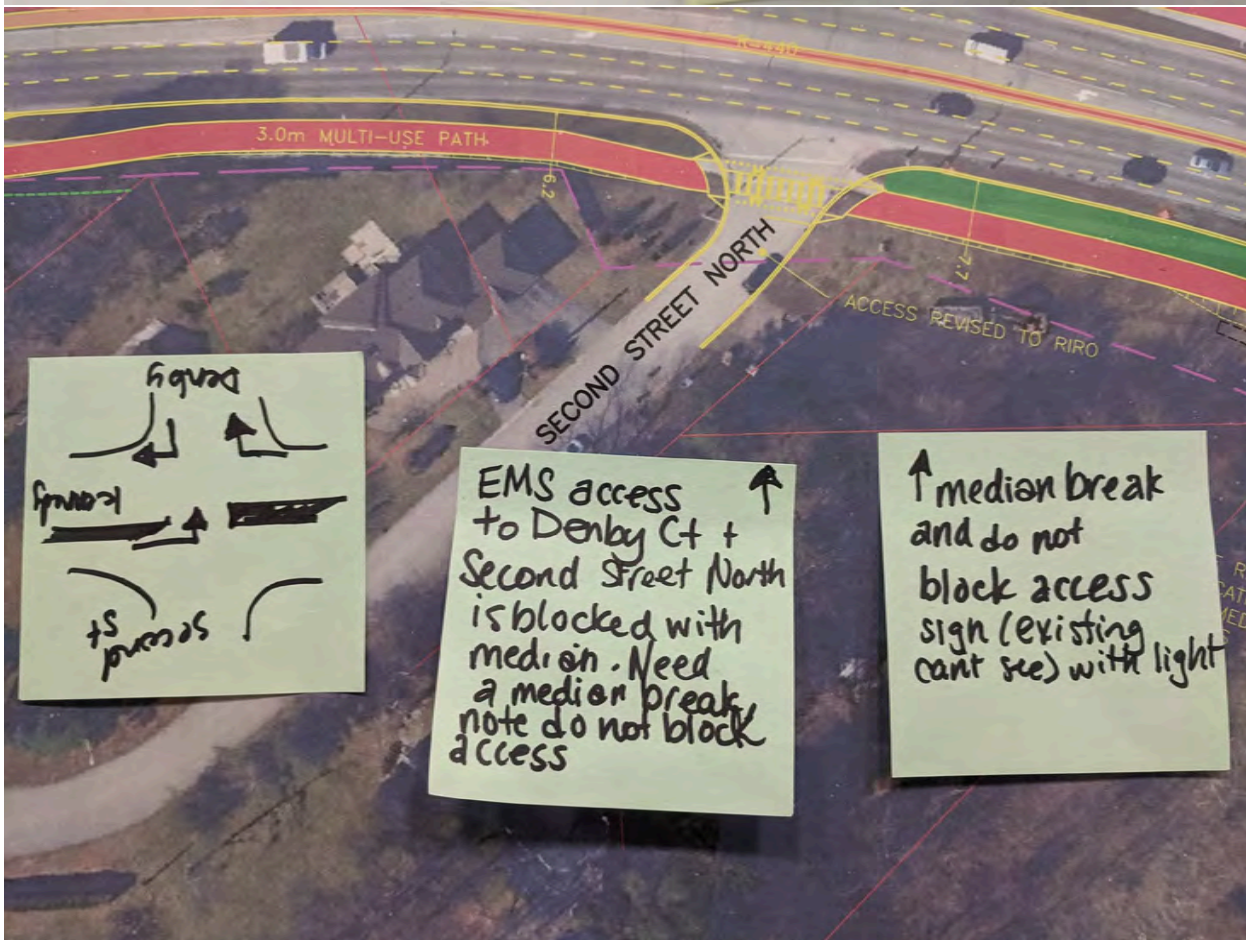 R=440
3.0m MULTI-USE PATH
6.2
7.7
SECOND STREET NORTH
ACCESS REVISED TO RIRO
Denby
Second St
EMS access
to Denby Ct +
Second Street North
is blocked with
median. Need
a median break,
note do not block
access
median break
and do not
block access
sign (existing
cant see) with light